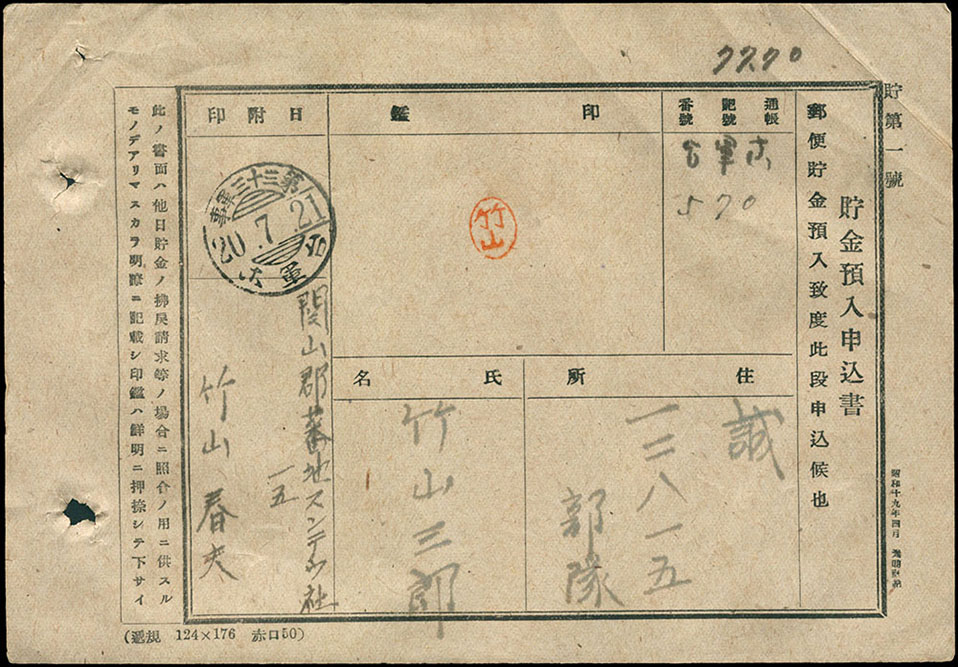 7770
貯第一號
貯金預入申込書
郵便貯金預入致度此段申込候也
通帳
記號
番號
台軍古
570
印鑑
竹山
日附印
20.7.21
住所
誠
一二八一五
部隊
氏名
竹山三郎
関山郡蕃地スンテク社
一五
竹山春夫
此ノ書面ハ他日貯金ノ拂戻請求等ノ場合ニ照合ノ用ニ供スル
モノデアリマスカラ明瞭ニ記載シ印鑑ハ鮮明ニ押捺シテ下サイ
(遞規 124×176 赤口50)